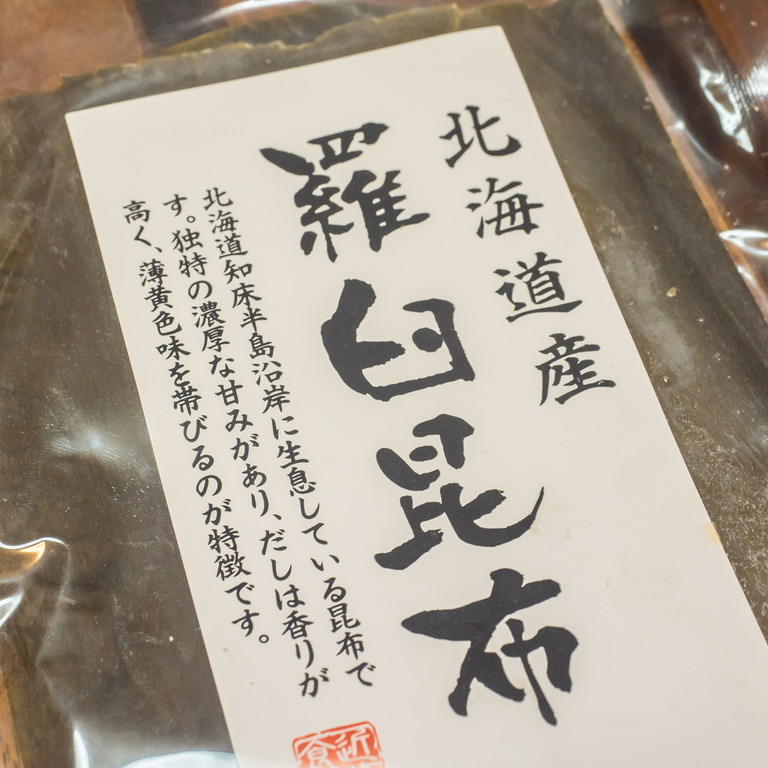 北海道産
羅臼昆布
北海道知床半島沿岸に生息している昆布で
す。独特の濃厚な甘みがあり、だしは香りが
高く、薄黄色味を帯びるのが特徴です。